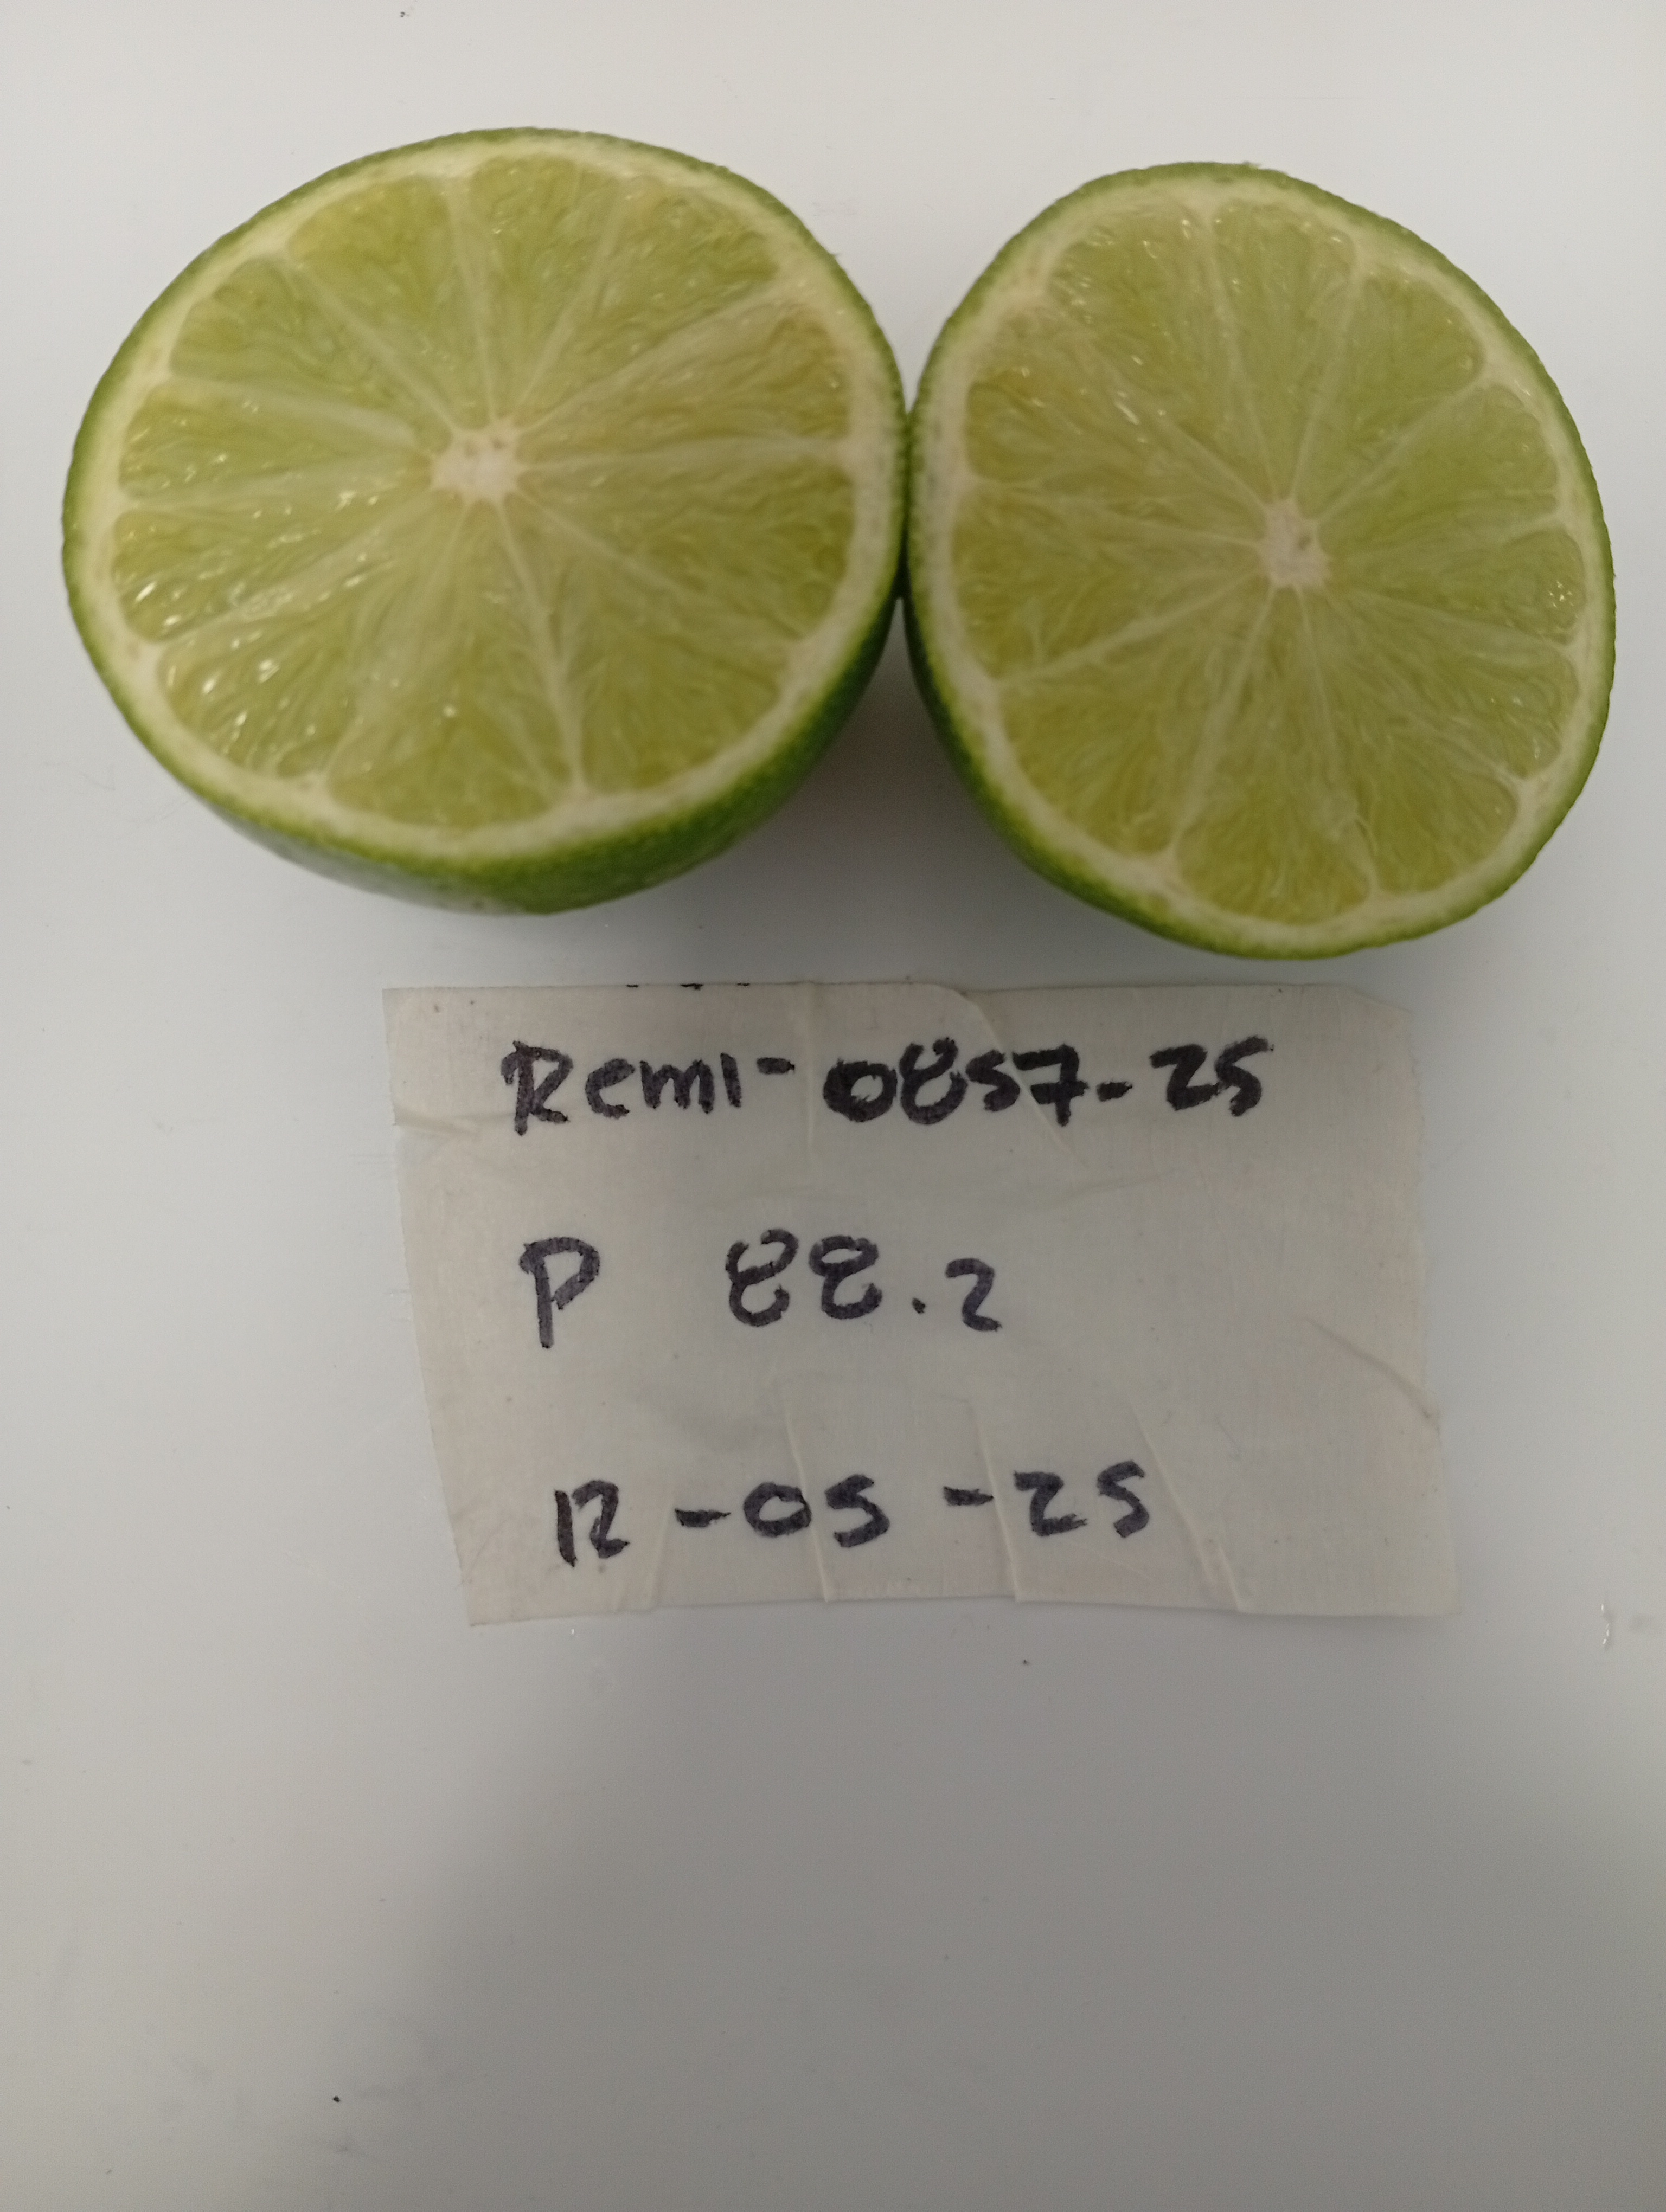 Remi-0857-25
P 88.2
12-05-25